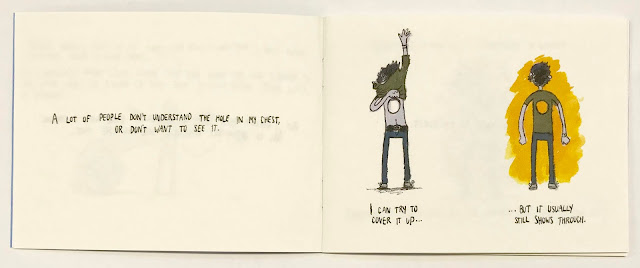 A LOT OF PEOPLE DON'T UNDERSTAND THE HOLE IN MY CHEST,
OR DON'T WANT TO SEE IT.
I CAN TRY TO
COVER IT UP...
...BUT IT USUALLY
STILL SHOWS THROUGH.